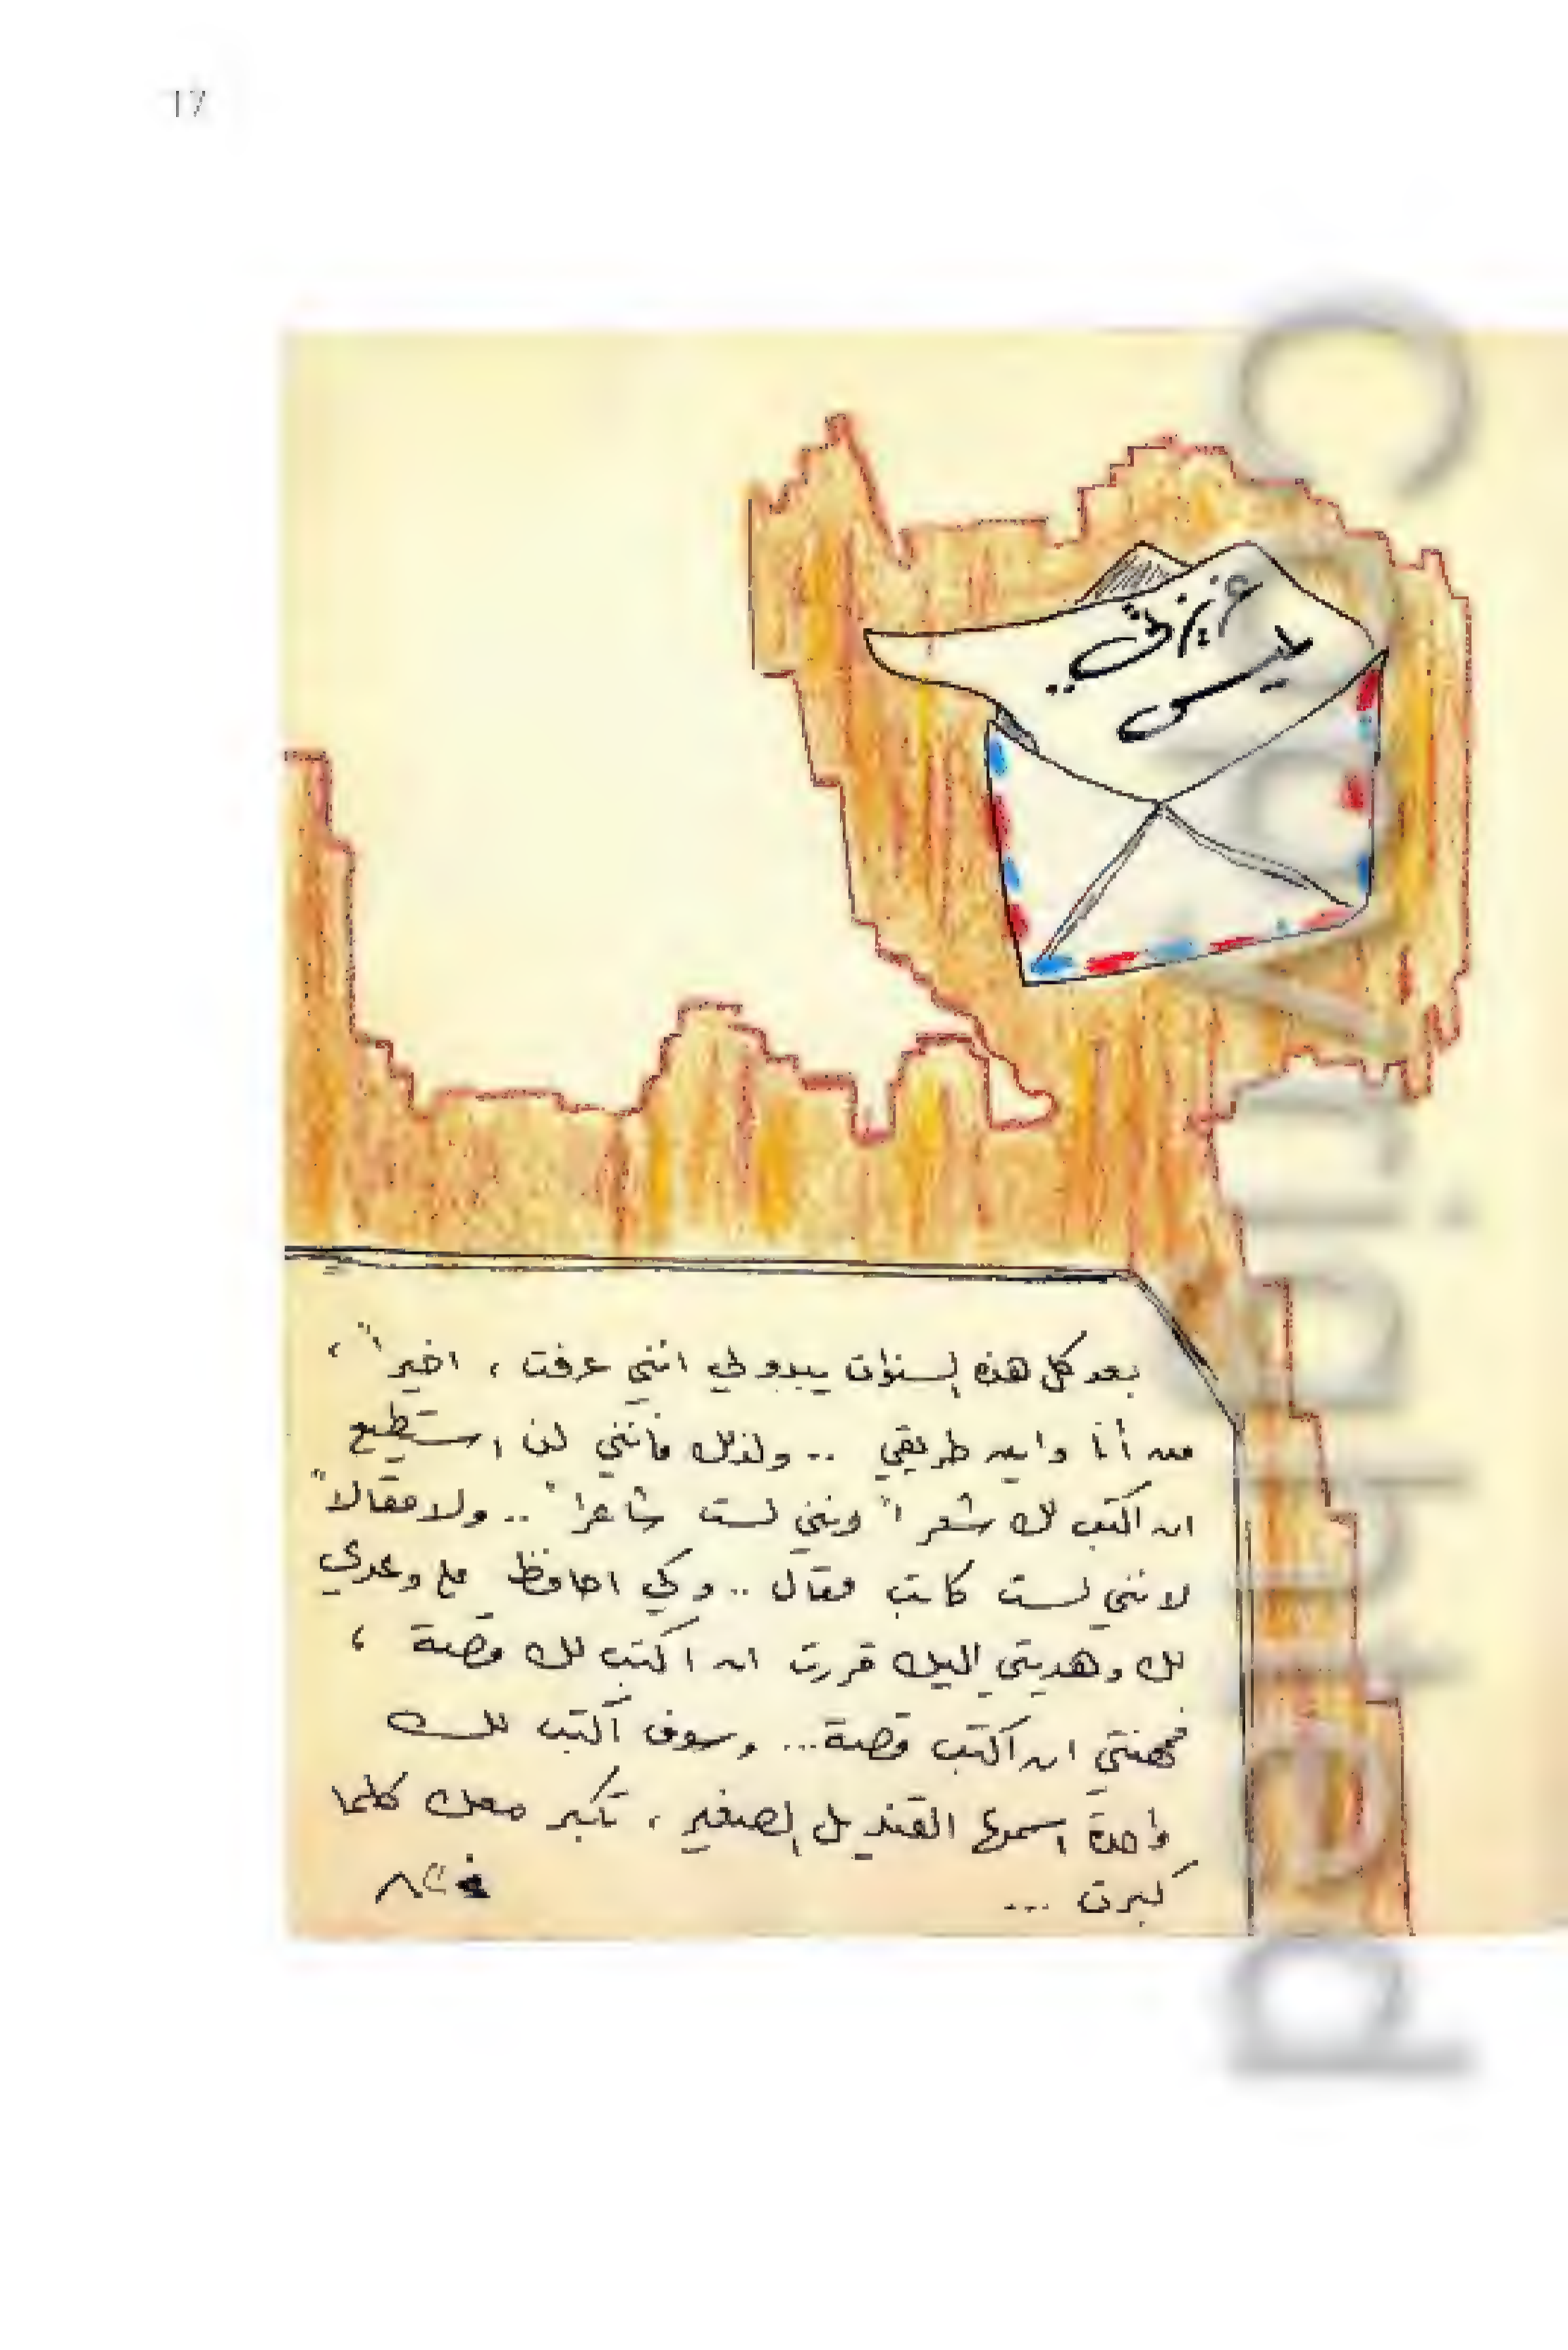 17
عزيزتي
لميس ..
بعد كل هذه السنوات يبدو لي انني عرفت ، اخيراً ،
من أنا واين طريقي .. ولذلك فانني لن استطيع
ان اكتب لك شعراً لانني لست شاعراً .. ولا مقالاً
لانني لست كاتب مقال .. وكي احافظ على وعدي
لك وهديتي اليك قررت ان اكتب لك قصة ،
فمهنتي ان اكتب قصة ... وسوف اكتب لك
واحدة اسمها القنديل الصغير ، تكبر معك كلما
كبرت ...